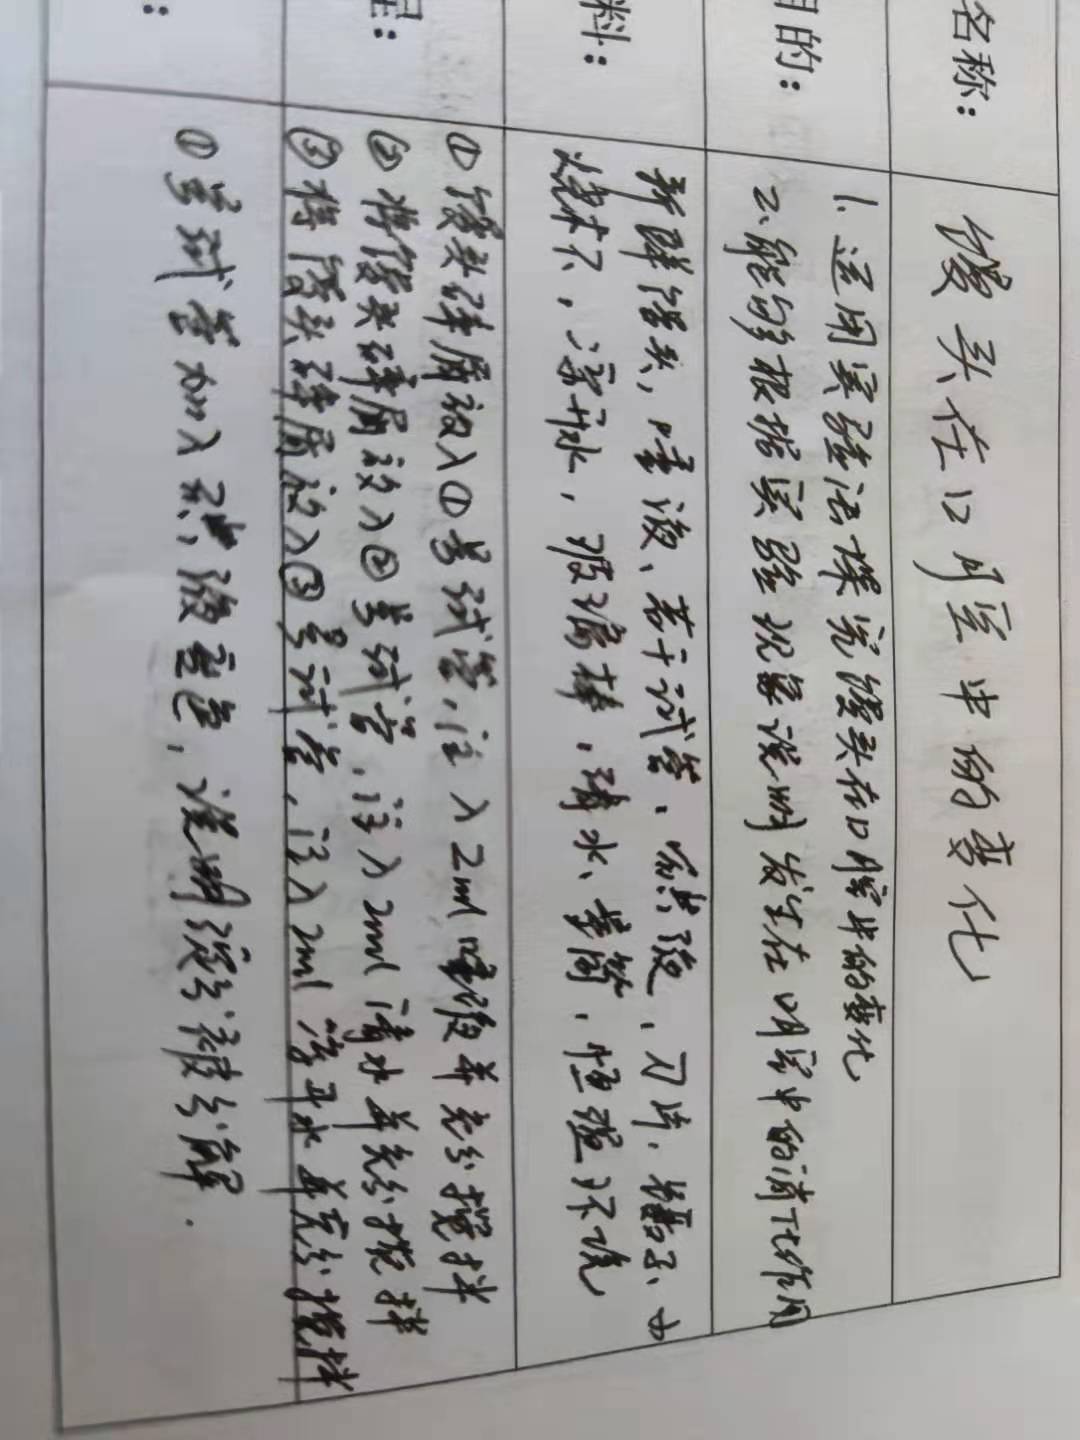 名称：
馒头在口腔中的变化
目的：
1、运用实验法探究馒头在口腔中的变化
2、能够根据实验现象说明发生在口腔中的消化作用
料：
新鲜馒头，唾液、若干试管、碘液、刀片，镊子、小
烧杯，凉开水，玻璃棒，清水、量筒，恒温环境
程：
①馒头碎屑放入①号试管，注入2ml唾液并充分搅拌
②将馒头碎屑放入②号试管，注入2ml清水并充分搅拌
③将馒头碎屑放入③号试管，注入2ml凉开水并充分搅拌
：
①号试管加入碘液变色，说明淀粉被分解．